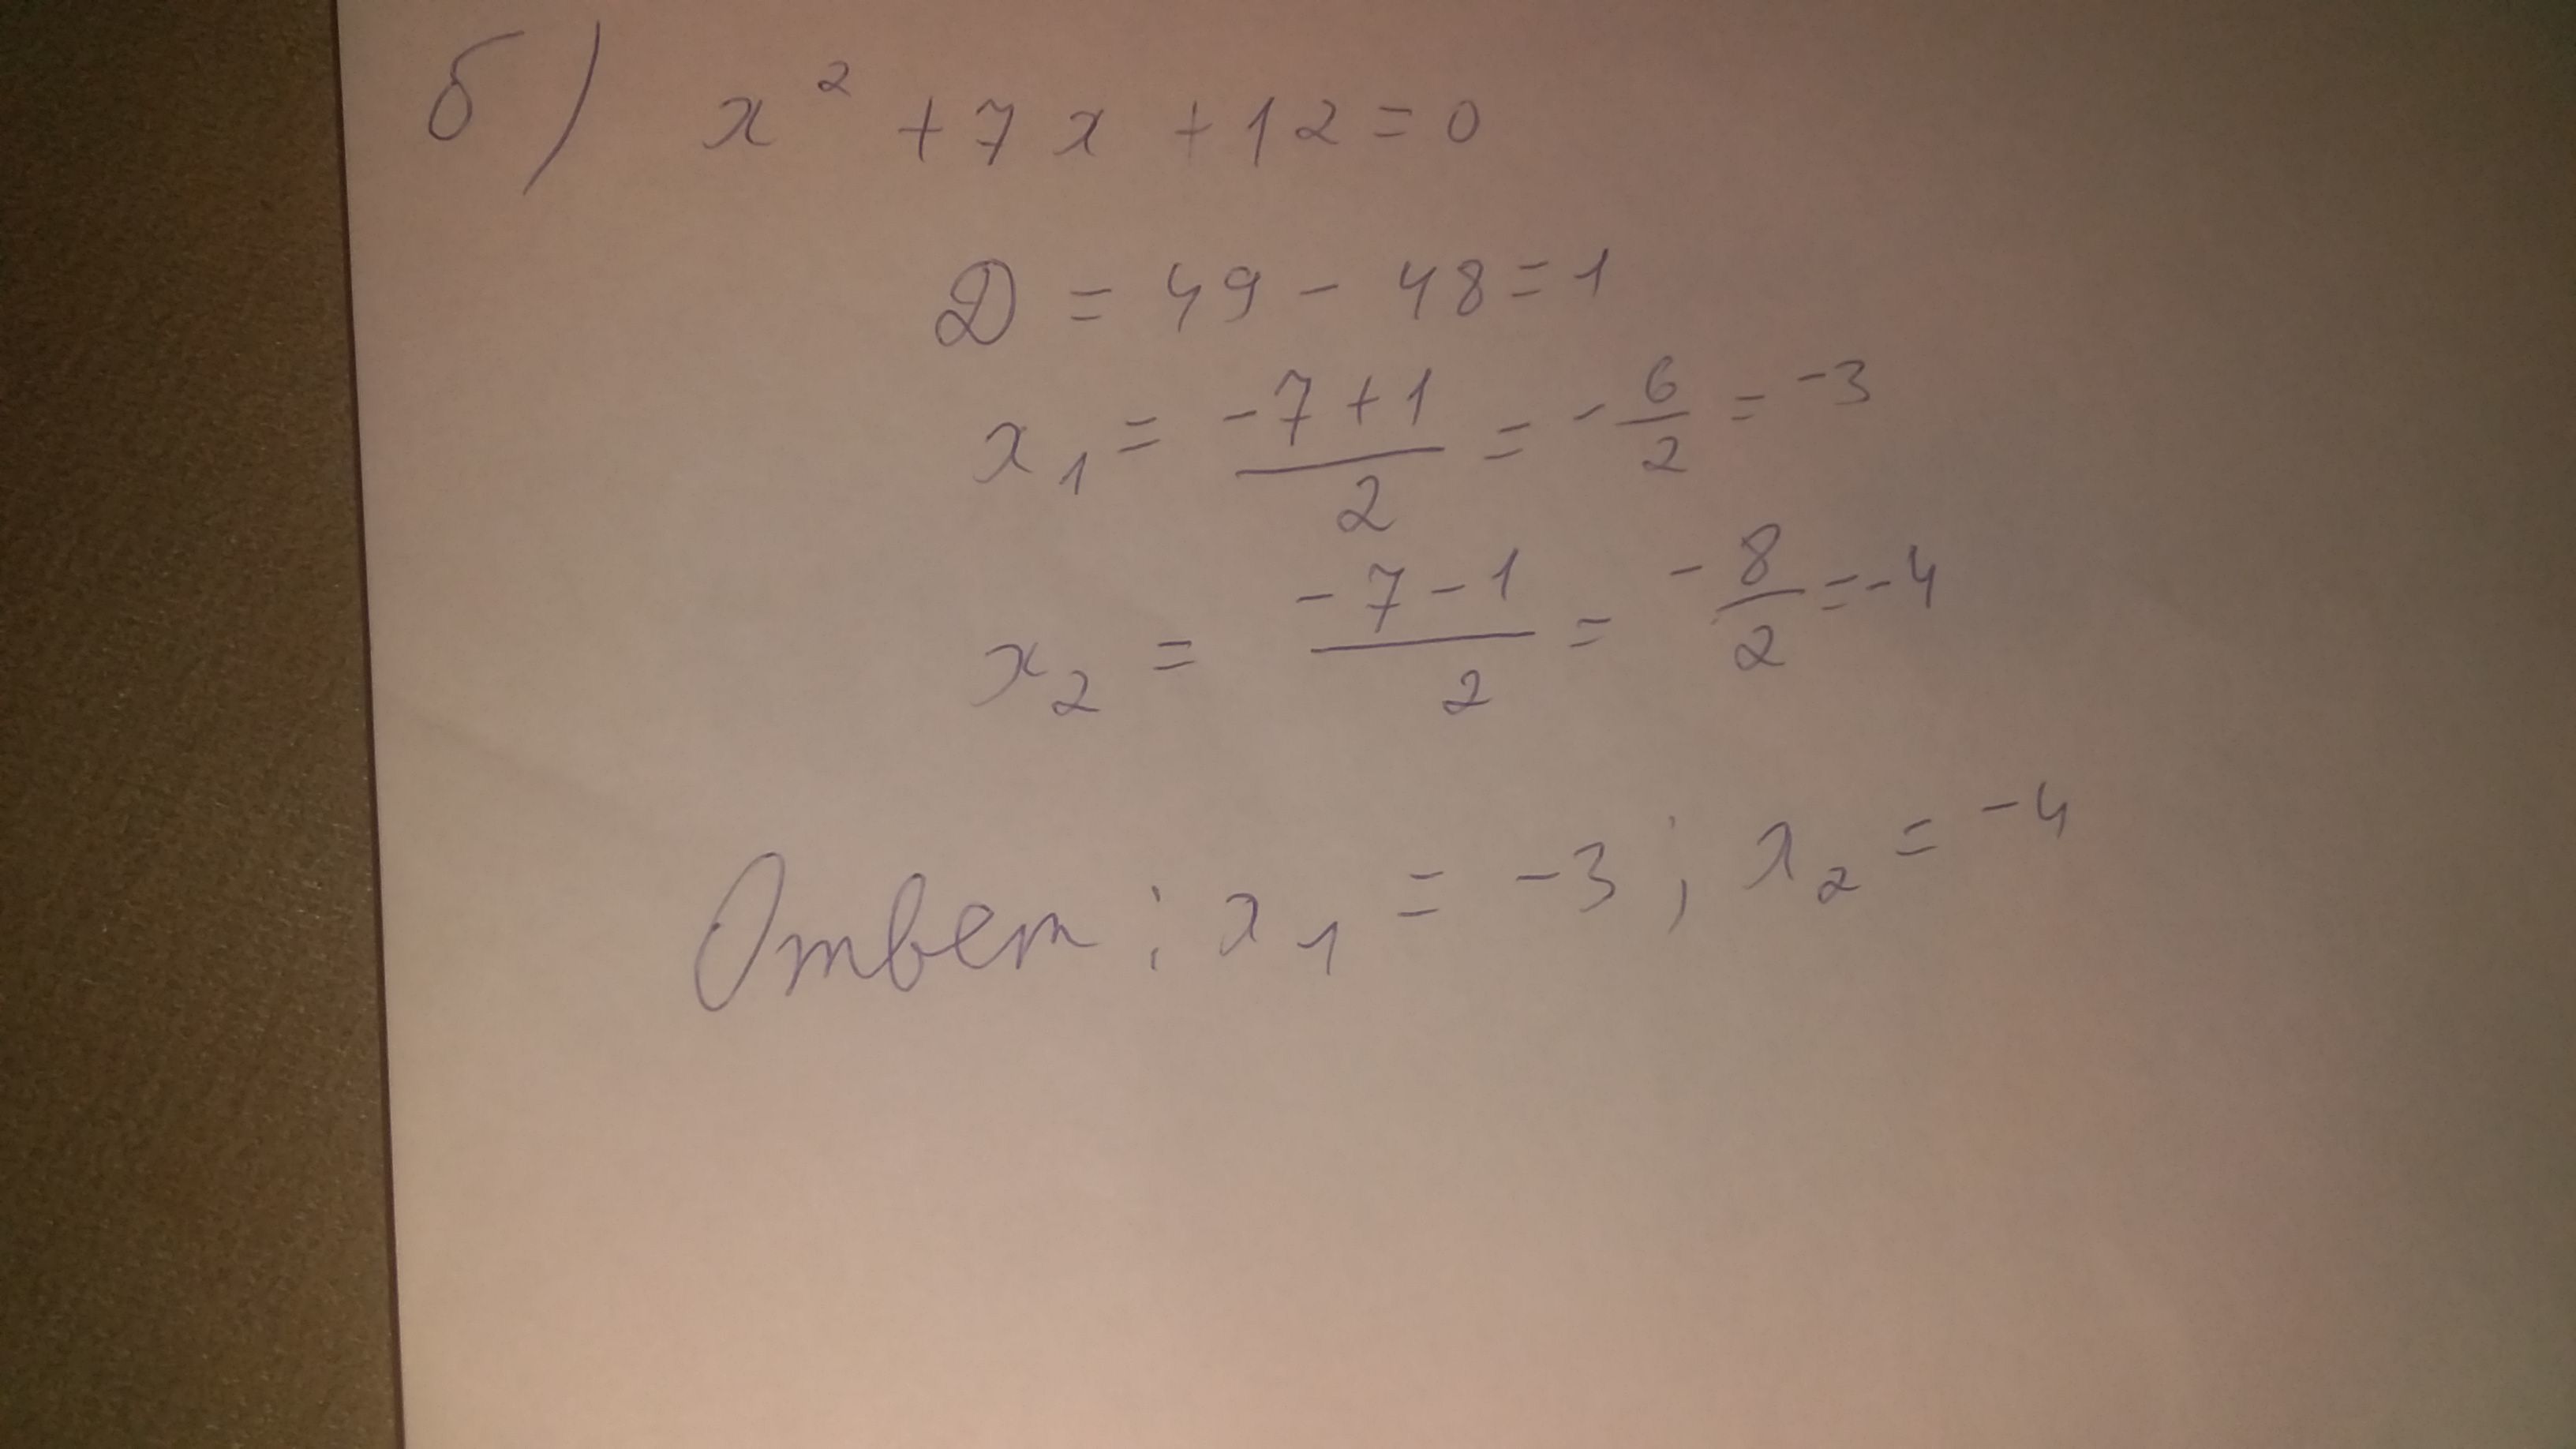 б) x² + 7x + 12 = 0
D = 49 - 48 = 1
x₁ = (-7+1)/2 = -6/2 = -3
x₂ = (-7-1)/2 = -8/2 = -4
Ответ: x₁ = -3; x₂ = -4